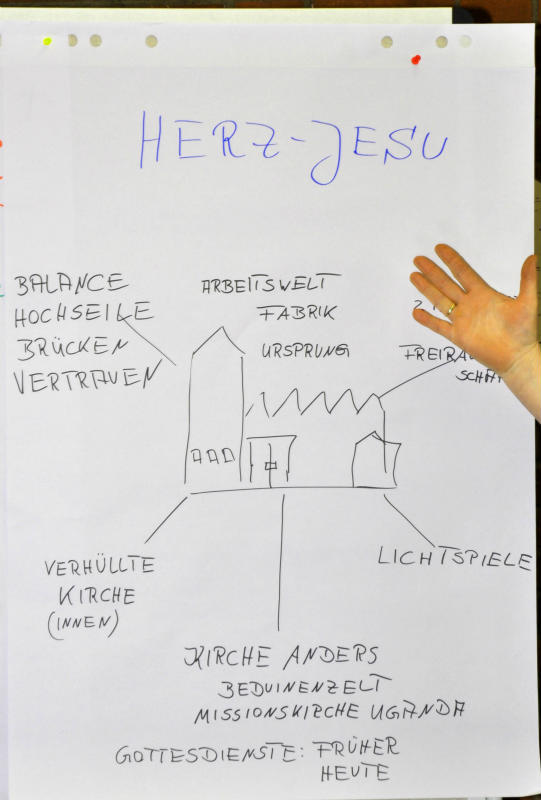 HERZ-JESU
BALANCE
HOCHSEILE
BRÜCKEN
VERTRAUEN
ARBEITSWELT
FABRIK
URSPRUNG
VERHÜLLTE
KIRCHE
(INNEN)
LICHTSPIELE
KIRCHE ANDERS
BEDUINENZELT
MISSIONSKIRCHE UGANDA
GOTTESDIENSTE: FRÜHER
HEUTE